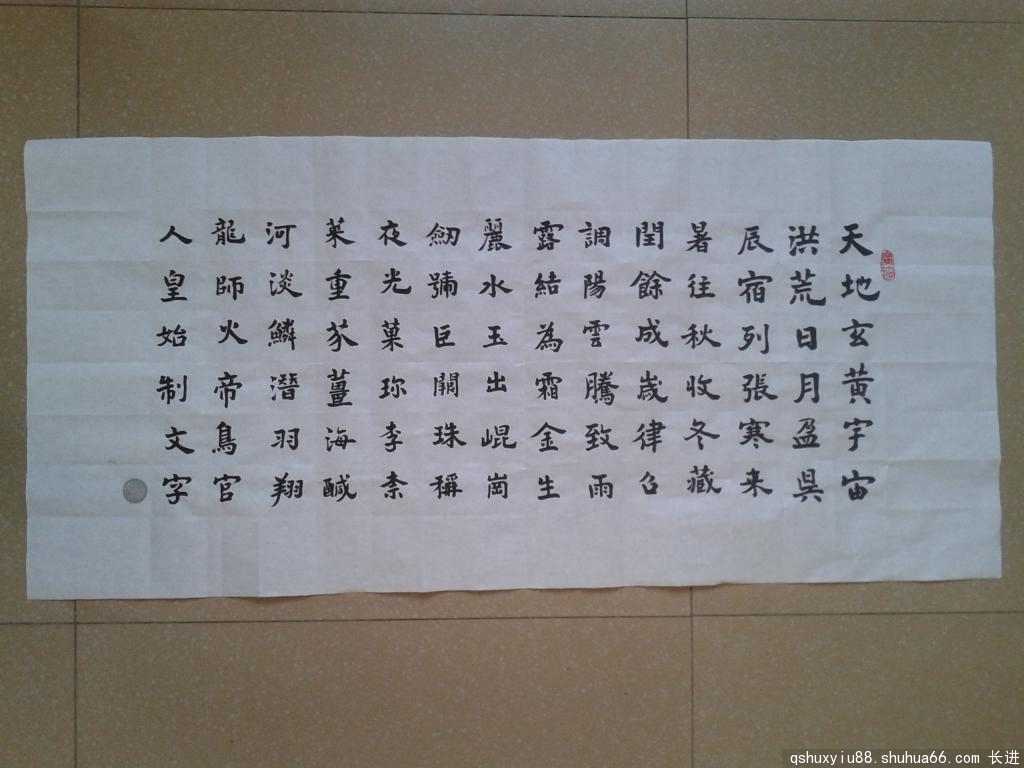 天地玄黄宇宙
洪荒日月盈昃
辰宿列張寒来
暑往秋收冬藏
閏餘成歲律召
調陽雲騰致雨
露結為霜金生
麗水玉出崐崗
劒號巨闕珠稱
夜光菓珎李柰
菜重芥薑海鹹
河淡鱗潛羽翔
龍師火帝鳥官
人皇始制文字
qshuxyiu88.shuhua66.com 长进